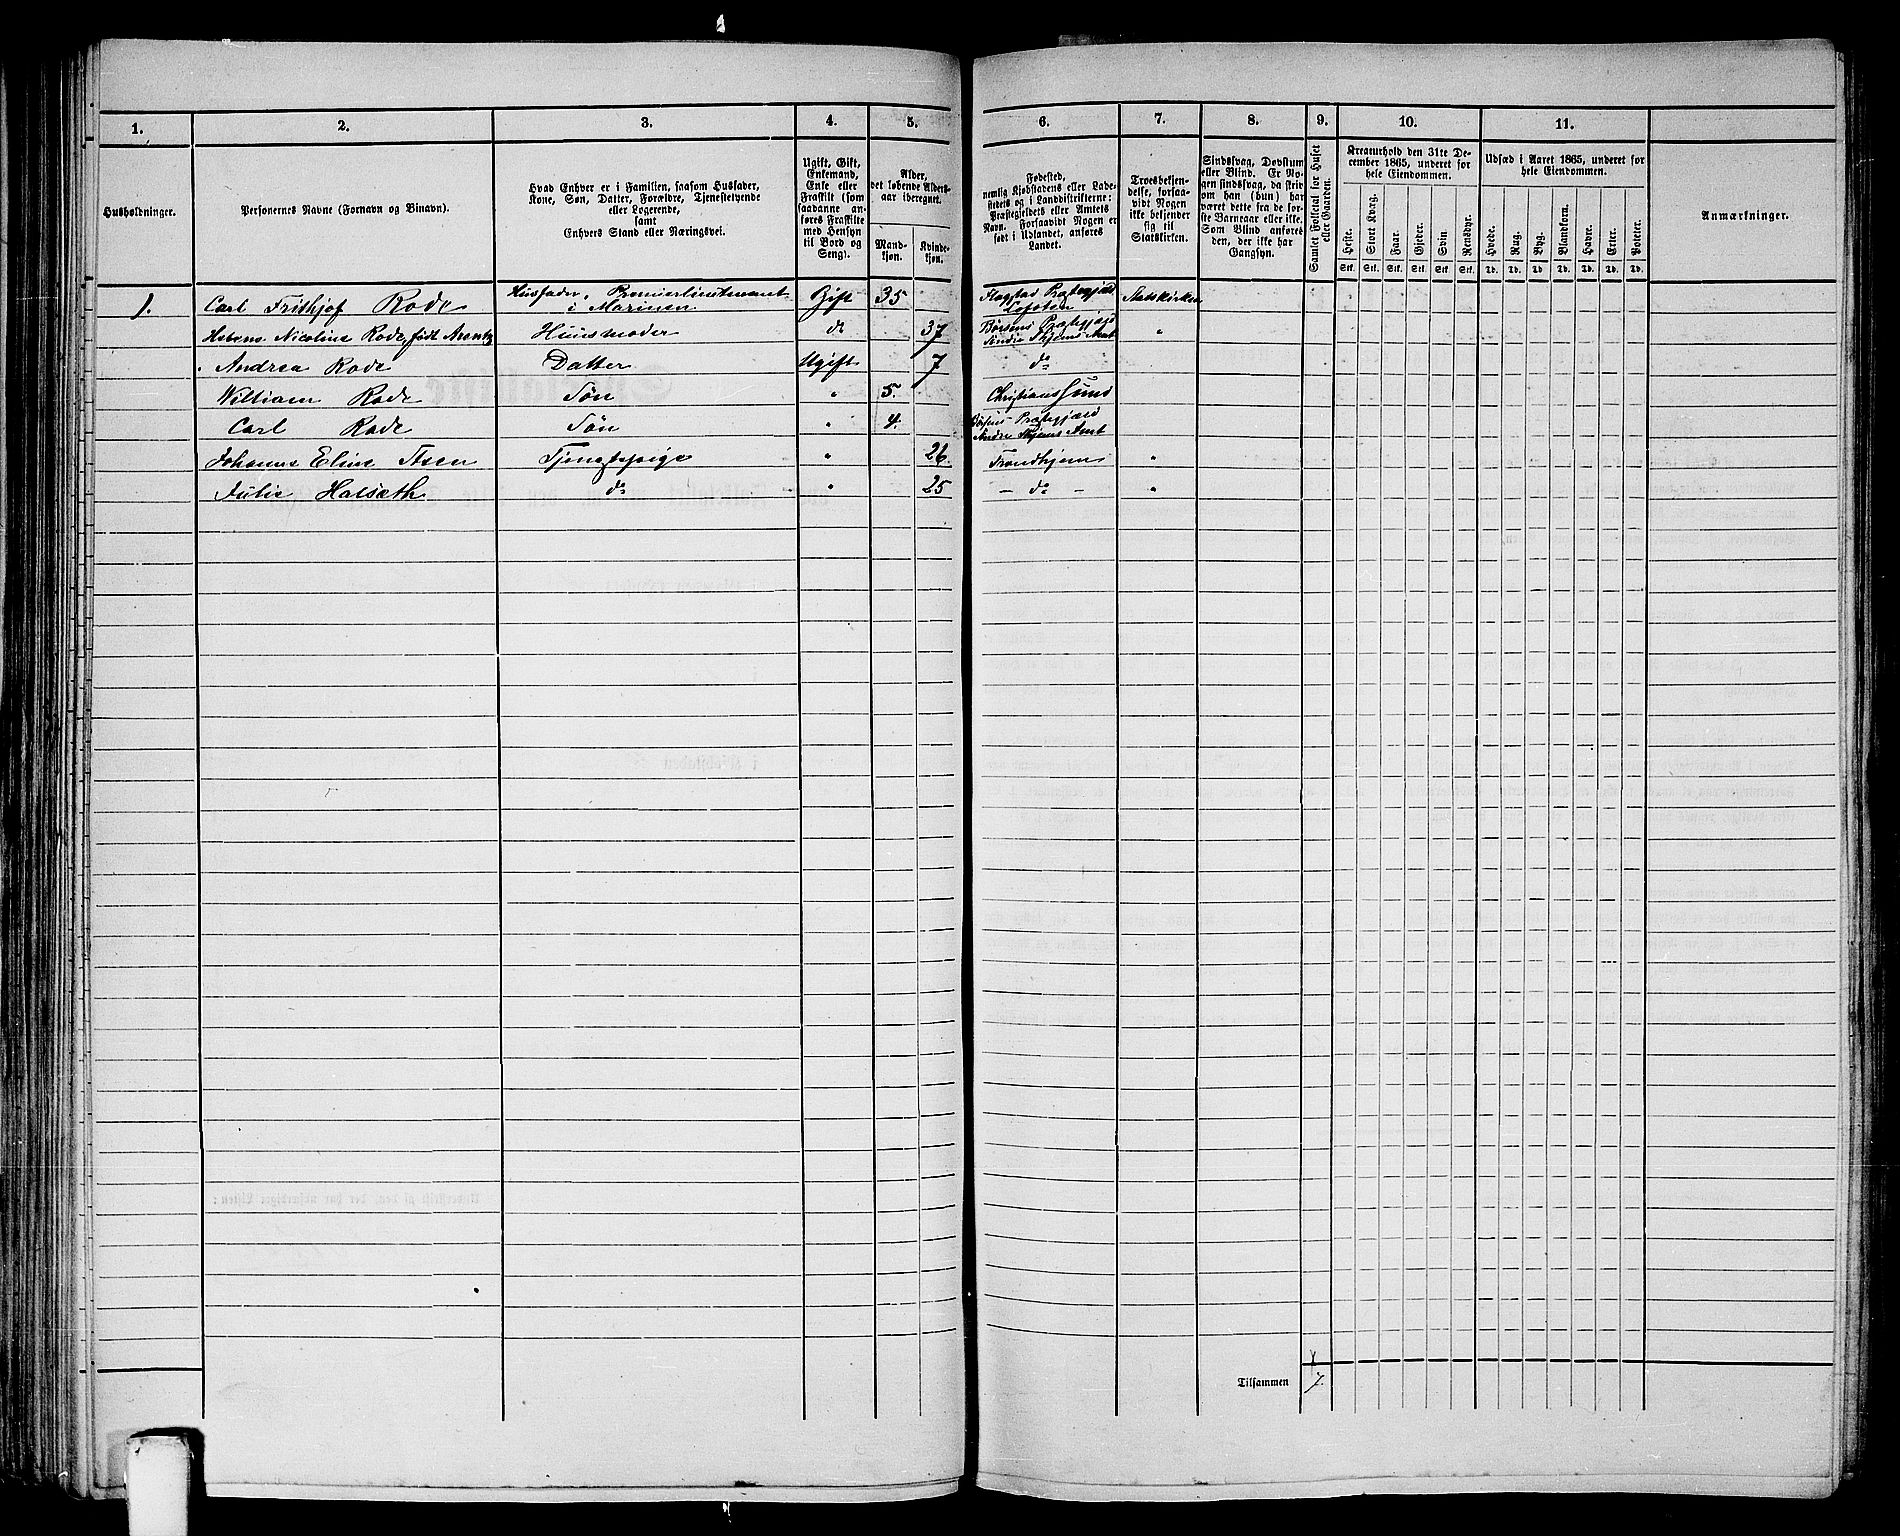 1. 2. 3. 4. 5. 6. 7. 8. 9. 10. 11.
Husholdninger.
Personernes Navne (Fornavn og Binavn).
Hvad Enhver er i Familien, saasom Husfader,
Kone, Søn, Datter, Forældre, Tjenestetyende
eller Logerende,
samt
Enhvers Stand eller Næringsvei.
Ugift, Gift,
Enkemand,
Enke eller
Fraskilt (som
saadanne an-
føres Fraskilte
med Hensyn
til Bord og
Seng).
Alder,
det løbende Alders-
aar iberegnet.
Mand-
kjøn.
Kvinde-
kjøn.
Fødested,
nemlig Kjøbstadens eller Lade-
stedets og i Landdistrikterne:
Præstegjeldets eller Amtets
Navn. Forsaavidt Nogen er
født i Udlandet, anføres
Landet.
Troesbekjen-
delse, forsaa-
vidt Nogen
ikke bekjender
sig til
Statskirken.
Sindssvag, Døvstum
eller Blind. Er No-
gen sindssvag, da skriv
om han (hun) har
været dette fra de før-
ste Barneaar eller ikke.
Som Blind anføres
den, der ikke har
Gangsyn.
Samlet Folketal for Huset
eller Gaarden.
Kreaturhold den 31te De-
cember 1865, underet for
hele Eiendommen.
Heste. Stort Kvæg. Faar. Gjeder. Svin. Rensdyr.
Stk. Stk. Stk. Stk. Stk. Stk.
Udsæd i Aaret 1865, underet for
hele Eiendommen.
Hvede. Rug. Byg. Blandkorn. Havre. Erter. Poteter.
Td. Td. Td. Td. Td. Td. Td.
Anmærkninger.
1. Carl Frithjof Rode Husfader, Premierlieutenant i Marinen Gift 35 Flagstad Præstegjæld Lofoten Statskirken
Nicoline Rode, født Arentz Huusmoder do 37 Børsens Præstegjæld Søndre Thjems Amt "
Andrea Rode Datter Ugift 7 do
William Rode Søn " 5. Christianssund
Carl Rode Søn " 4. Børsens Præstegjæld Søndre Thjems Amt
Johanne Eline Tjenestepige " 26. Trondhjem "
Julie Halseth do " 25 – do – "
Tilsammen 7.